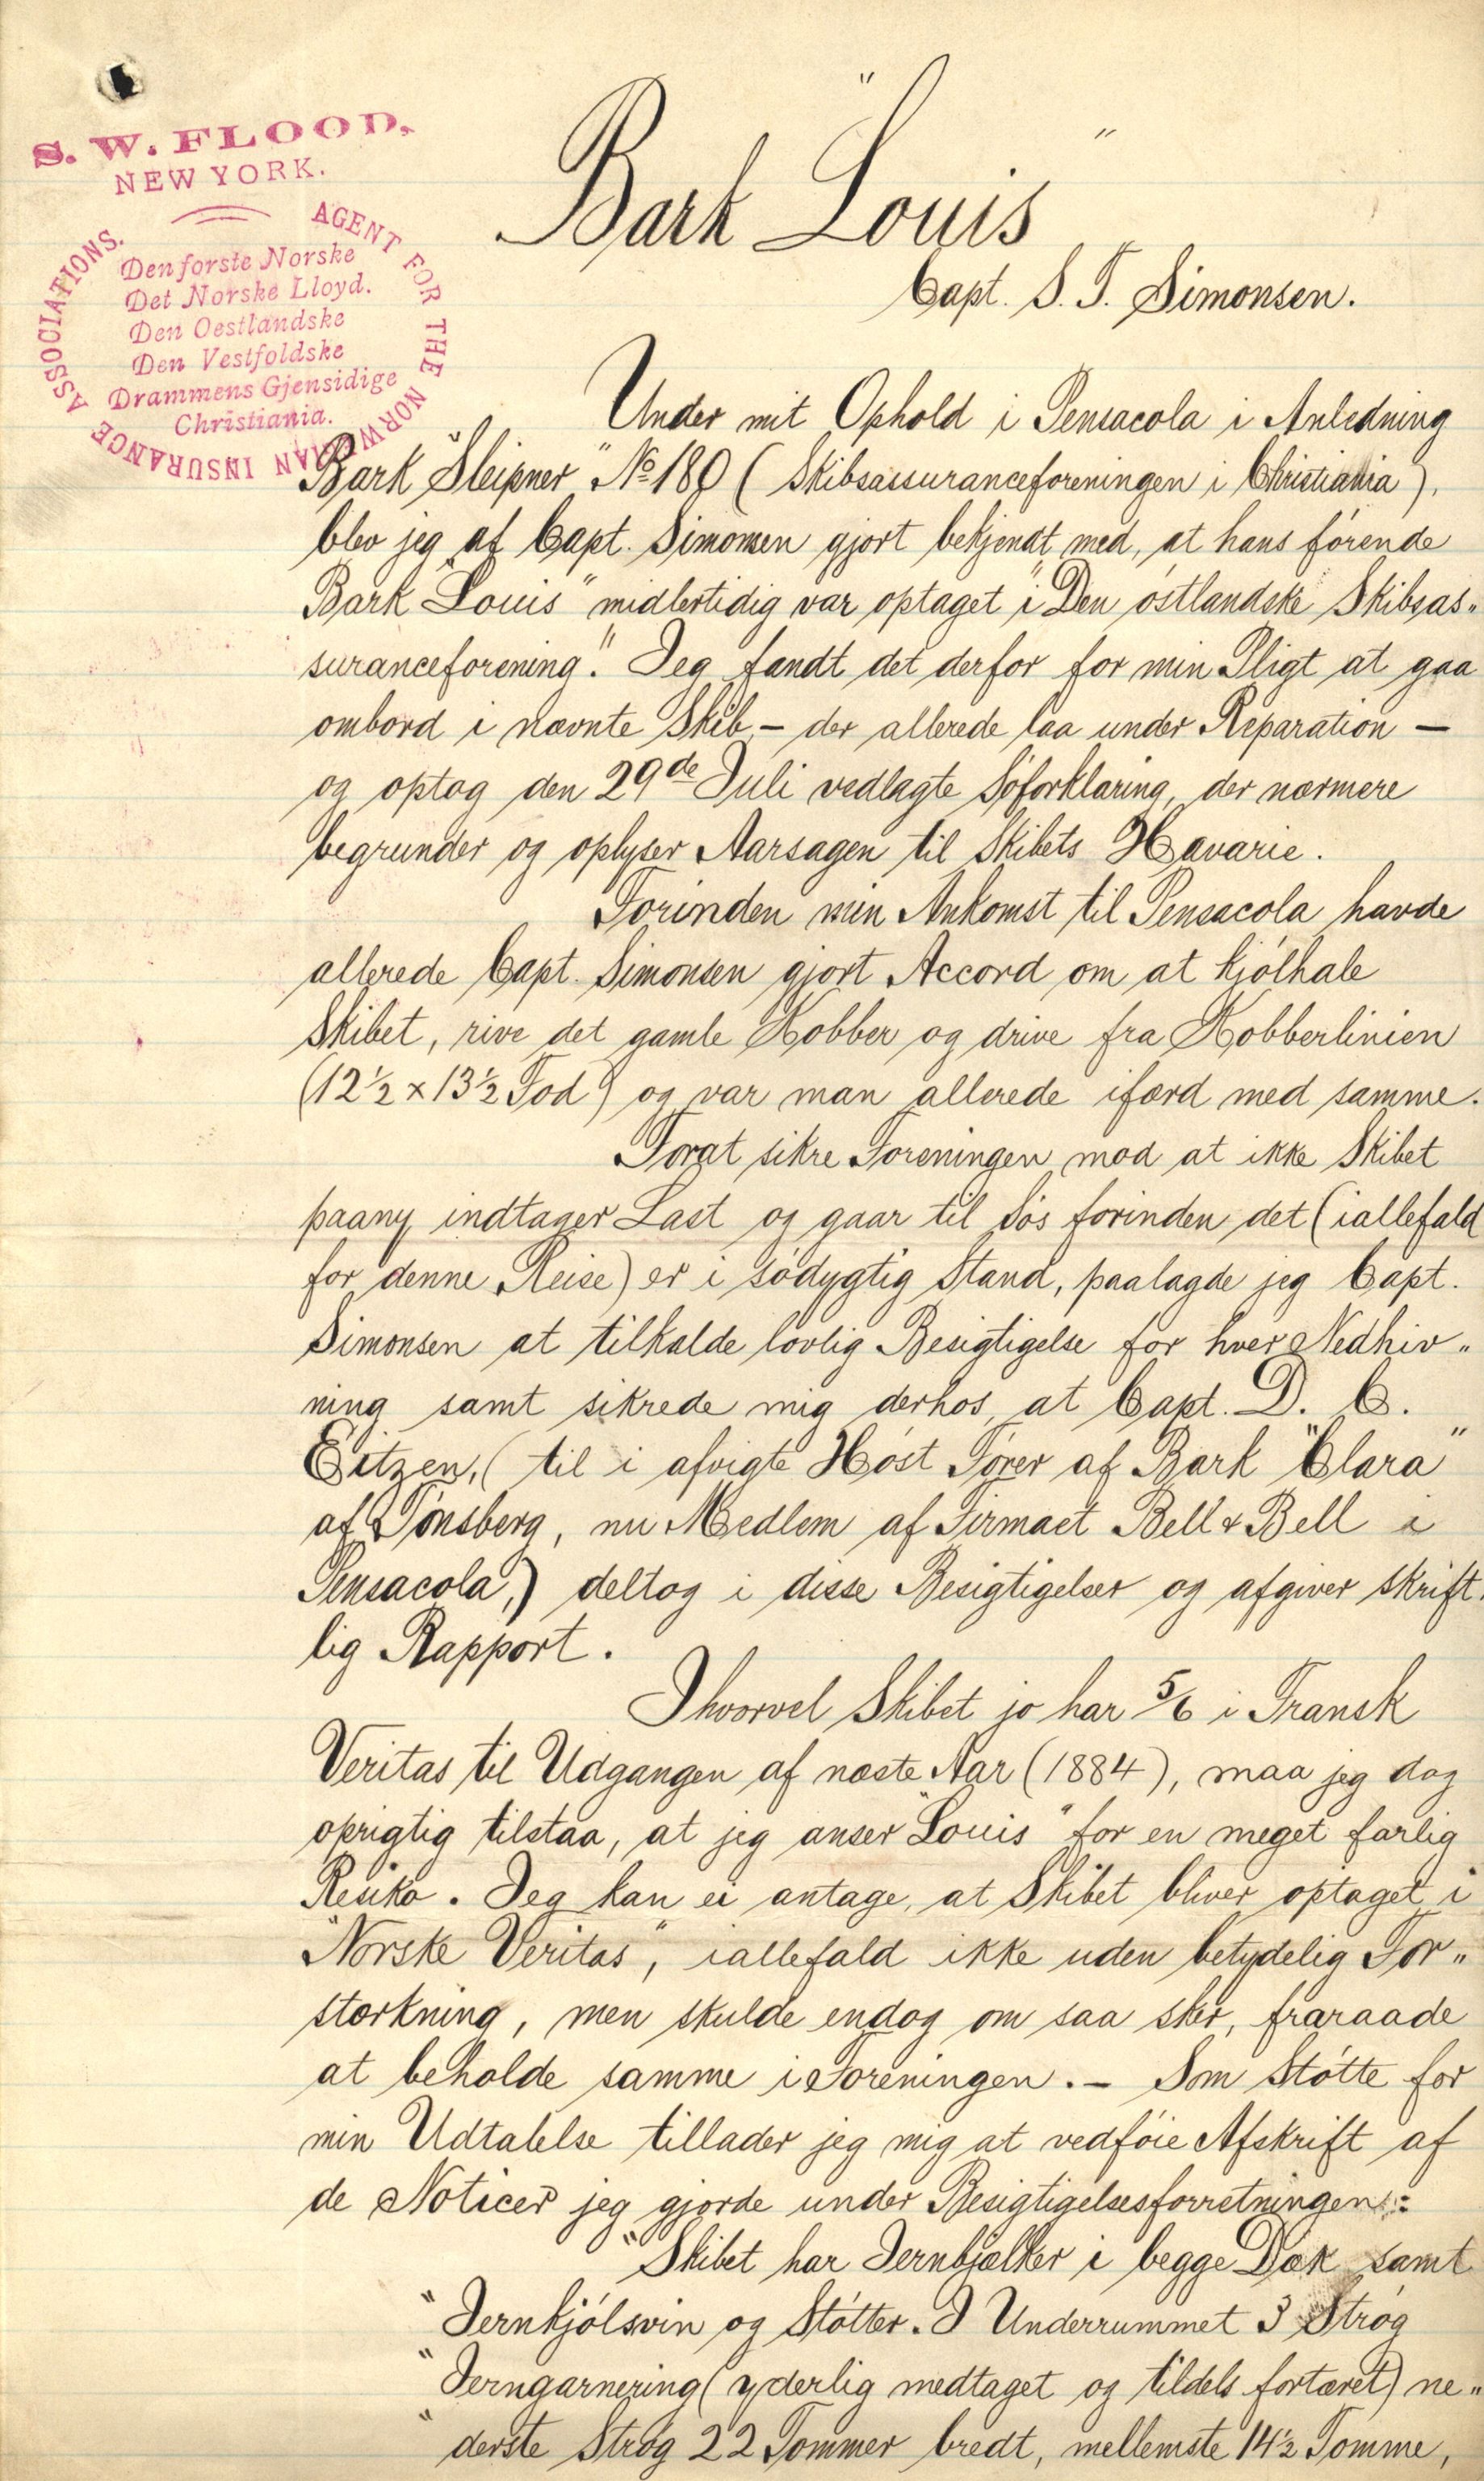 S. W. FLOOD,
NEW YORK.
AGENT FOR THE NORWEGIAN INSURANCE ASSOCIATIONS.
Den forste Norske
Det Norske Lloyd.
Den Oestlandske
Den Vestfoldske
Drammens Gjensidige
Christiania.
Bark "Louis"
Capt. S. T. Simonsen.
Under mit Ophold i Pensacola i Anledning
Bark "Sleipner" No 180 (Skibsassuranceforeningen i Christiania),
blev jeg af Capt. Simonsen gjort bekjendt med, at hans førende
Bark "Louis" midlertidig var optaget i "Den østlandske Skibsas„
suranceforening." Jeg fandt det derfor for min Pligt at gaa
ombord i nævnte Skib, – der allerede laa under Reparation –
og optog den 29de Juli vedlagte Søforklaring, der nærmere
begrunder og oplyser Aarsagen til Skibets Havarie.
Forinden min Ankomst til Pensacola havde
allerede Capt. Simonsen gjort Accord om at kjølhale
Skibet, rive det gamle Kobber og drive fra Kobberlinien
(12½ x 13½ Fod) og var man allerede ifærd med samme.
Forat sikre Foreningen mod at ikke Skibet
paany indtager Last og gaar til Søs forinden det (iallefald
for denne Reise) er i sødygtig Stand, paalagde jeg Capt.
Simonsen at tilkalde lovlig Besigtigelse for hver Nedhiv„
ning samt sikrede mig derhos, at Capt. D. C.
Eitzen, (til i afvigte Høst Fører af Bark "Clara"
af Tønsberg, nu Medlem af Firmaet Bell & Bell i
Pensacola,) deltog i disse Besigtigelser og afgiver skrift„
lig Rapport.
Ihvorvel Skibet jo har 5/6 i Fransk
Veritas til Udgangen af næste Aar (1884), maa jeg dog
oprigtig tilstaa, at jeg anser "Louis" for en meget farlig
Resiko. Jeg kan ei antage, at Skibet bliver optaget i
"Norske Veritas", iallefald ikke uden betydelig For„
stærkning, men skulde endog om saa sker, fraraade
at beholde samme i Foreningen. – Som Støtte for
min Udtalelse tillader jeg mig at vedføie Afskrift af
de Noticer jeg gjorde under Besigtigelsesforretningen:
"Skibet har Jernbjælker i begge Dæk samt
"Jernkjølsvin og Støtter. I Underrummet 3 Strøg
"Jerngarnering (yderlig medtaget og tildels fortæret) ne„
"derste Strøg 22 Tommer bredt, mellemste 14½ Tomme,